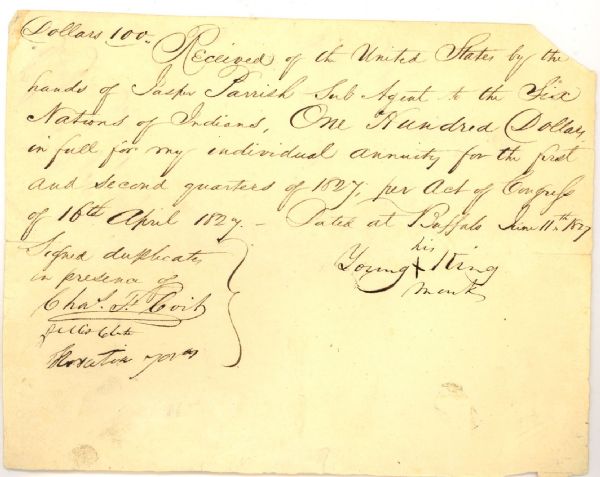 Dollars 100.
Received of the United States by the
hands of Jasper Parrish Sub Agent to the Six
Nations of Indians, One Hundred Dollars
in full for my individual annuity for the first
and second quarters of 1827, per Act of Congress
of 16th April 1827. – Dated at Buffalo June 11th 1827
Signed duplicates
in presence of
his
Young X King
mark
Chas. 
Horatio